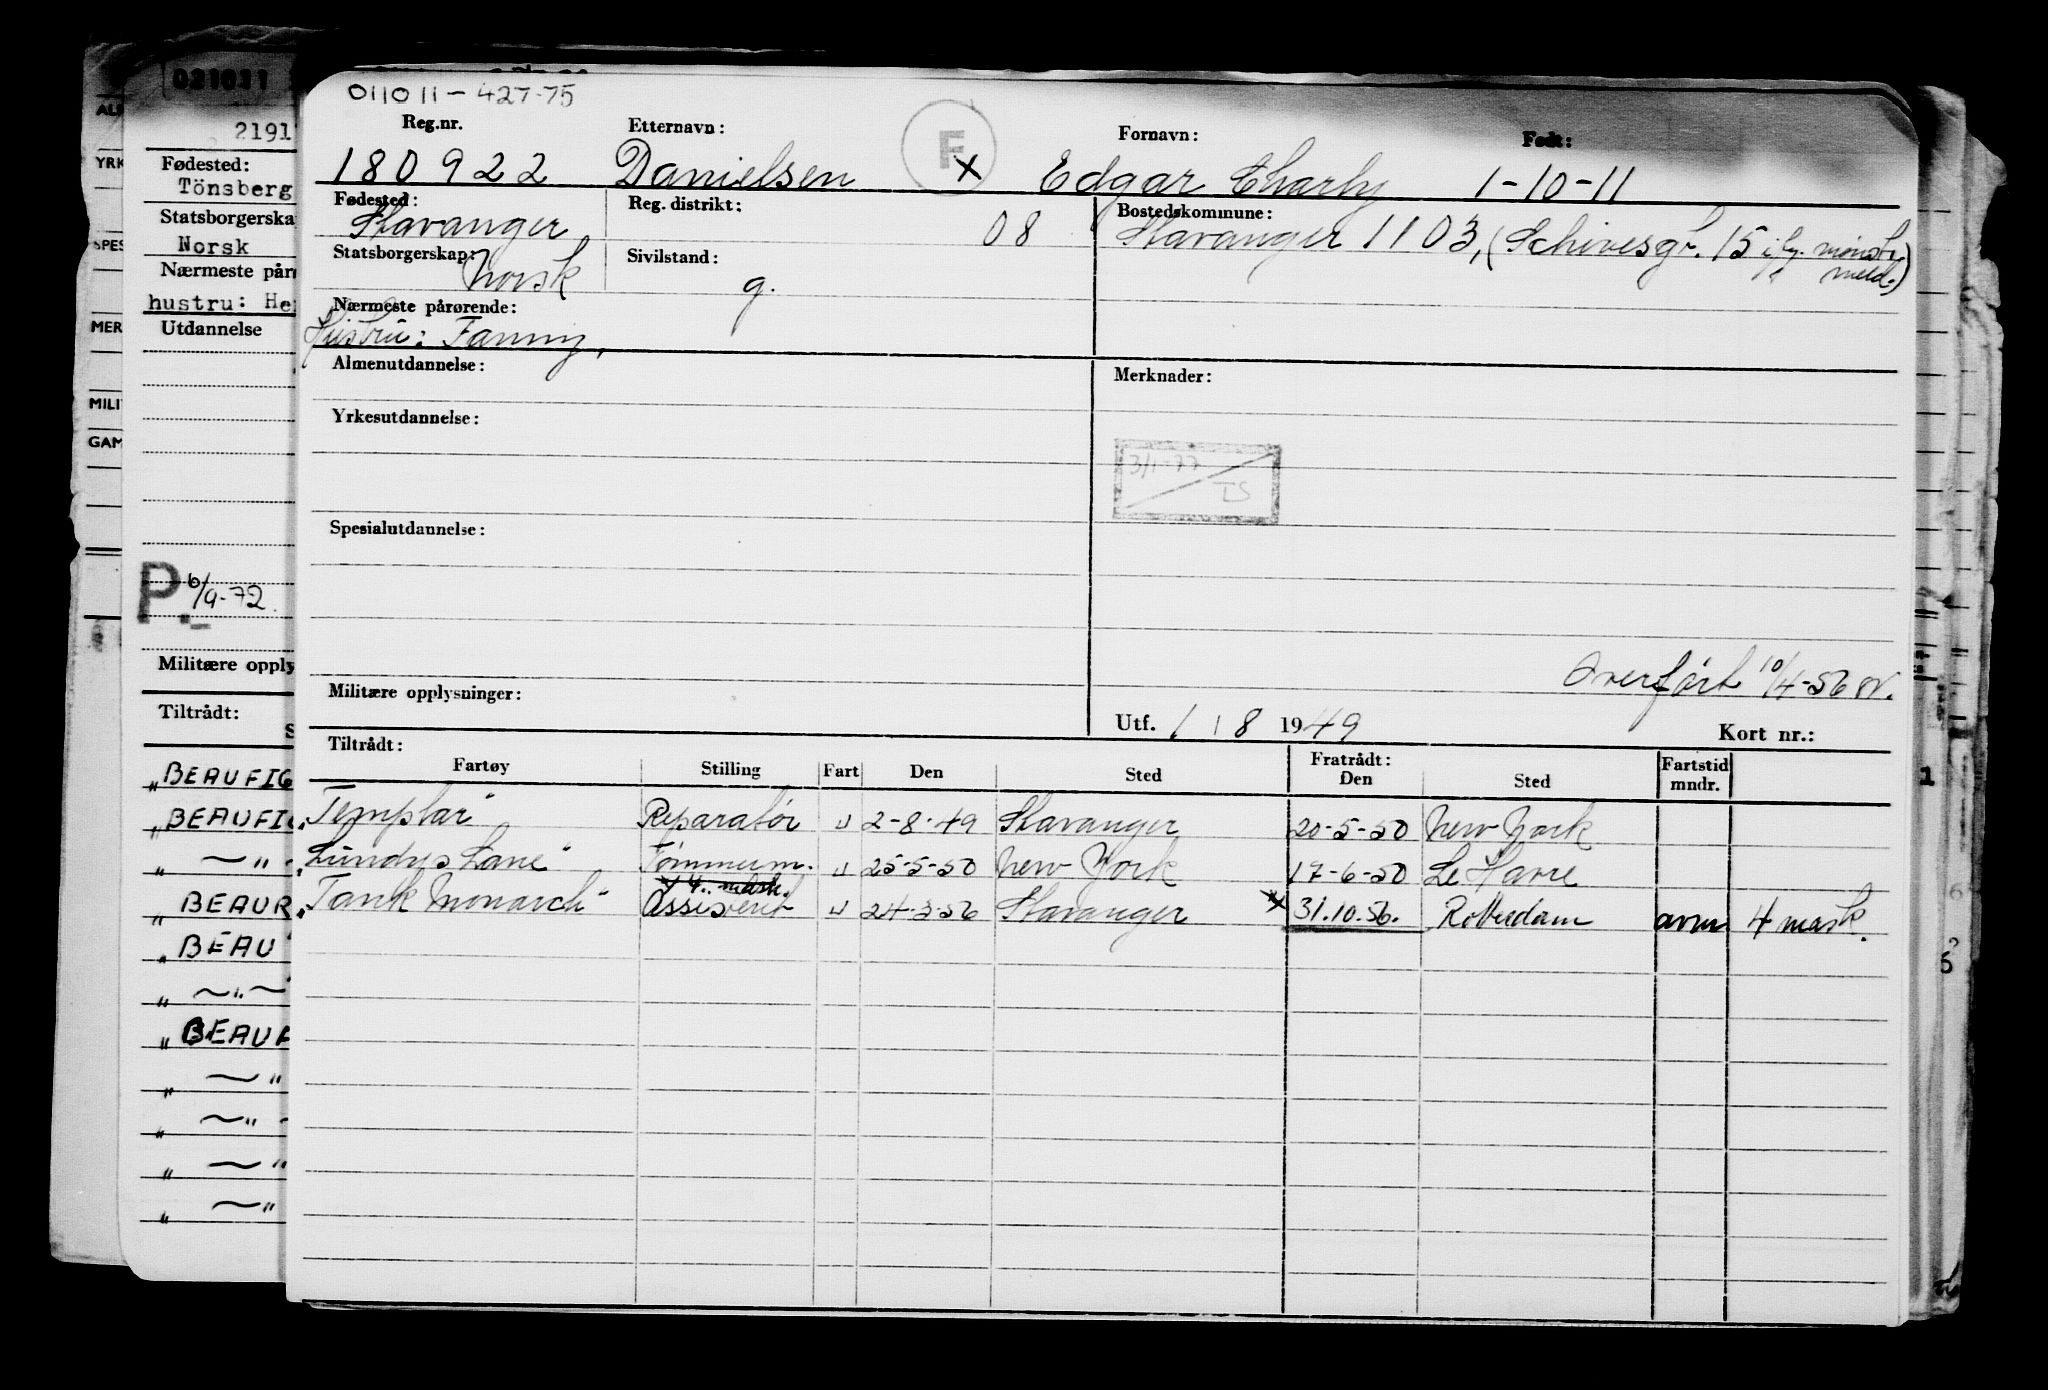 021011
2191
Fødested:
Tönsberg
Statsborgerska
Norsk
Nærmeste påre
hustru: He
Utdannelse
P. 6/9-72
Militære opply
Tiltrådt:
S
„BEAUFIG
„BEAUFI
„ —"—
BEAUR
„BEAU
„ —"—
„BEAUF
„ —"
„ —"—
„ —"
„ —"
YRK
MER
MILI
GAM
011011-427-75
Reg.nr. Etternavn: F Fornavn: Født:
180922 Danielsen x Edgar Charly 1-10-11
Fødested: Reg. distrikt: Bostedskommune:
Stavanger 08 Stavanger 1103, (Schivesgt. 15 iflg. mønstr. meld.)
Statsborgerskap: Sivilstand:
Norsk g.
Nærmeste pårørende:
Hustru: Fanny,
Almenutdannelse: Merknader:
Yrkesutdannelse:
3/1-77
TS
Spesialutdannelse:
Overført 10/4-56
Militære opplysninger:
Utf. 1 / 8 1949 Kort nr.:
Tiltrådt: Fratrådt: Fartstid
Fartøy Stilling Fart Den Sted Den Sted mndr.
„Templar" Reparatør u 2-8-49 Stavanger 20-5-50 New York
„Lundys Lane" Tømmerm. u 25-5-50 New York 17-6-50 Le Havre
4. mask.
„Tank Monarch" Assistent u 24-3-56 Stavanger x 31.10.56. Rotterdam avm 4 mask.